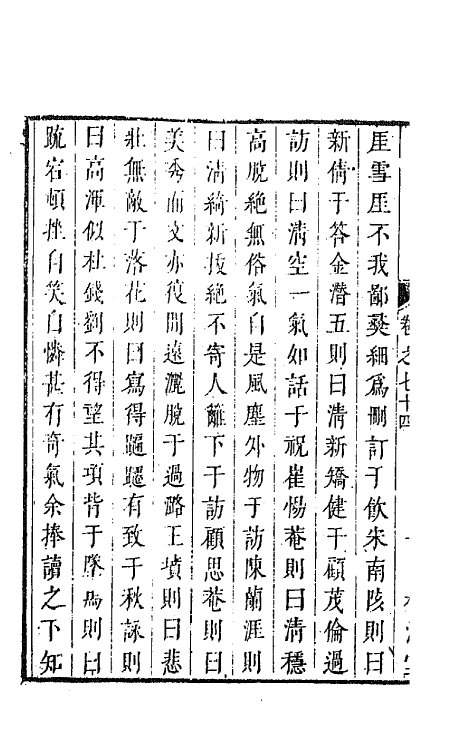 卷之七十四
厓雪厓不我鄙爰細爲刪訂于飲朱南陔則曰
新倩于答金潛五則曰清新矯健于顧茂倫過
訪則曰清空一氣如話于祝崔惕菴則曰清穩
高脫絶無俗氣自是風塵外物于訪陳蘭涯則
曰清綺新拔絶不寄人籬下于訪顧思菴則曰
美秀而文亦復閒遠灑脫于過路王墳則曰悲
壯無敵于落花則曰寫得躚躚有致于秋詠則
曰高渾似杜錢劉不得望其項背于墜馬則曰
跪宕頓挫自笑自憐甚有奇氣余捧讀之下知